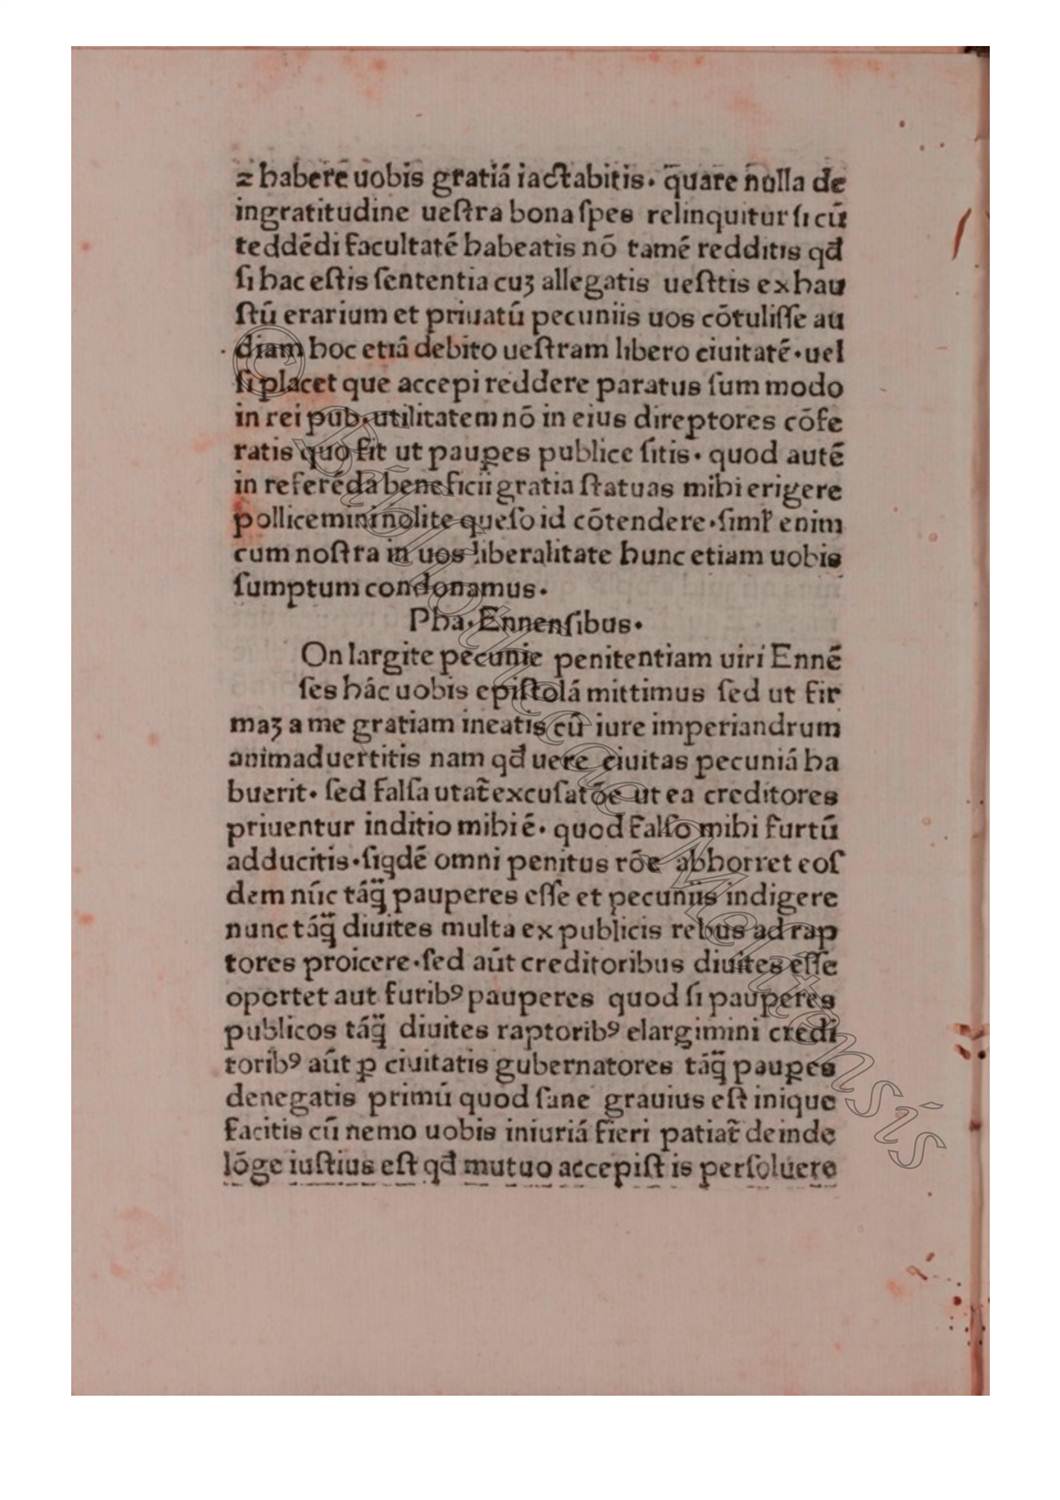 ⁊ habere uobis gratiā iactabitis· q̄uare n̄ulla de
ingratitudine ueſtra bona ſpes relinquitur ſi cū
teddēdi facultatē habeatis nō tamē redditis qđ
ſi hac eſtis ſententia cuꝫ allegatis ueſttis exhau
ſtū erarium et priuatū pecuniis uos cōtuliſſe au
diam hoc etiā debito ueſtram libero ciuitatē·uel
ſi placet que accepi reddere paratus ſum modo
in rei pub·utilitatem nō in eius direptores cōfe
ratis quo fit ut pauꝑes publice ſitis· quod autē
in referēda beneficii gratia ſtatuas mihi erigere
pollicemini nolite queſo id cōtendere·ſimꝉ enim
cum noſtra in uos liberalitate hunc etiam uobis
ſumptum condonamus·
Pha·Ennenſibus·
On largite pecunie penitentiam uiri Ennē
ſes hāc uobis epiſtolā mittimus ſed ut fir
maꝫ a me gratiam ineatis cū iure imperiandrum
animaduertitis nam qđ uere ciuitas pecuniā ha
buerit· ſed falſa utat̄ excuſatōe ut ea creditores
priuentur inditio mihi ē· quod falſo mihi furtū
adducitis·ſiqdē omni penitus rōe abhorret eoſ
dem nūc tāq̄ pauperes eſſe et pecuniis indigere
nunc tāq̄ diuites multa ex publicis rebus ad rap
tores proicere·ſed aūt creditoribus diuites eſſe
oportet aut furibꝰ pauperes quod ſi pauperes
publicos tāq̄ diuites raptoribꝰ elargimini credi
toribꝰ aūt ꝑ ciuitatis gubernatores tāq̄ pauꝑes
denegatis primū quod ſane grauius eſt inique
facitis cū nemo uobis iniuriā fieri patiat̄ deinde
lōge iuſtius eſt qđ mutuo accepiſt is perſoluere
© Bibliothecae Melitensis